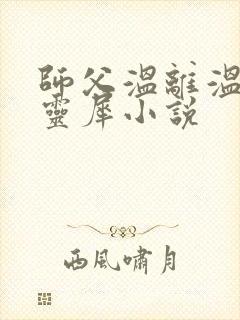 師父溫離溫
靈犀小說
西風嘯月